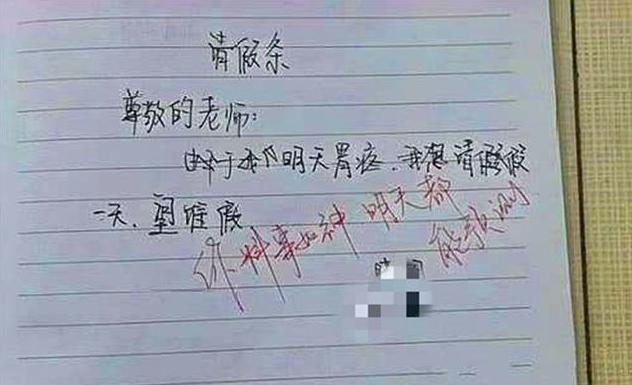 请假条
尊敬的老师：
由于我明天胃疼，我想请假
一天，望准假
你料事如神 明天都
能预测
时间